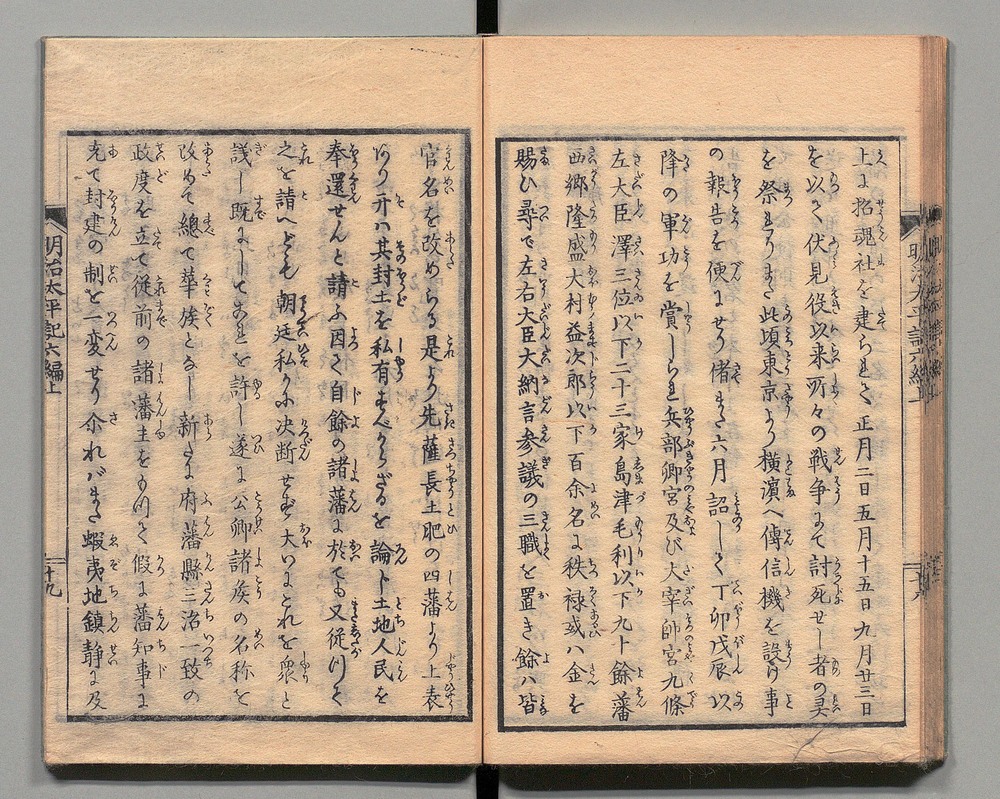 上に招魂社を建らるゝ正月二日五月十五日九月廿三日
を以て伏見役以来所々の戦争にて討死せし者の霊
を祭らるまた此頃東京より横濱へ傳信機を設け事
の報告を便にせり偖また六月詔して丁卯戊辰以
降の軍功を賞しられ兵部卿宮及び大宰帥宮九條
左大臣澤三位以下二十三家島津毛利以下九十餘藩
西郷隆盛大村益次郎以下百余名に秩禄或ハ金を
賜ひ尋で左右大臣大納言参議の三職を置き餘ハ皆
官名を改めらる是より先薩長土肥の四藩より上表
なり开ハ其封土を私有すべからざるを論ト土地人民を
奉還せんと請ふ因て自餘の諸藩に於ても又従りて
之を請へども朝廷私かに决断せず大いにこれを衆と
議し既にしてこれを許し遂に公卿諸侯の名称を
改めて總て華族となし新たに府藩縣三治一致の
政度を立て従前の諸藩主をもつて假に藩知事に
充て封建の制を一変せり尒れバまた蝦夷地鎮静に及
明治太平記六編上
十九